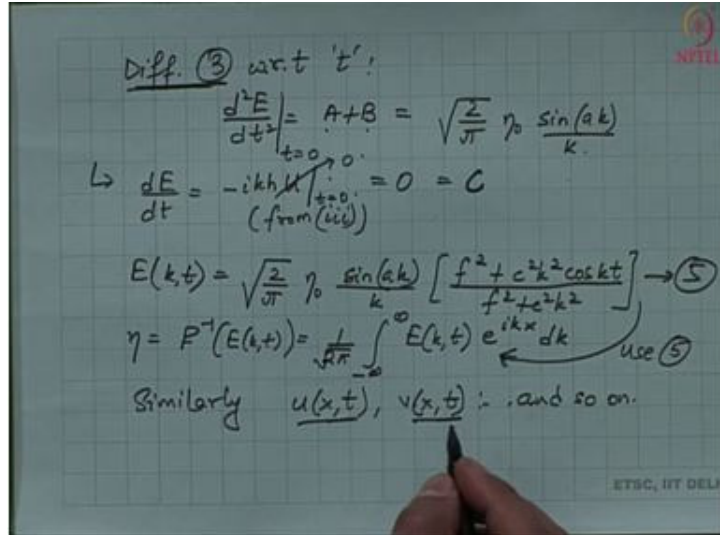 NPTEL
Diff. ③ w.r.t 't' :
d²E/dt² |ₜ₌₀ = A+B = √(2/π) η₀ sin(ak)/k.
↳ dE/dt = -ikh U |ₜ₌₀ → 0 = 0 = C
(from (iii))
E(k,t) = √(2/π) η₀ sin(ak)/k [ (f² + c²k² cos kt) / (f² + c²k²) ] → ⑤
η = F⁻¹(E(k,t)) = 1/√2π ∫_{-∞}^{∞} E(k,t) e^{ikx} dk
use ⑤
Similarly u(x,t), v(x,t) :- .and so on.
ETSC, IIT DELH